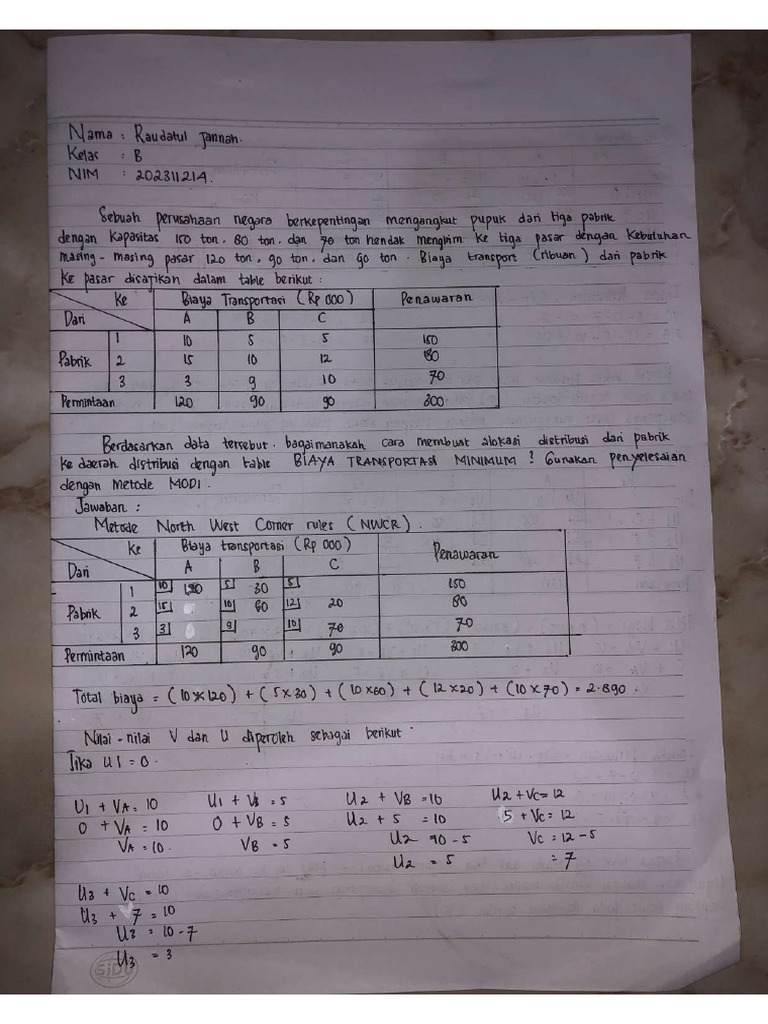 Nama : Raudatul Jannah.
Kelas : B
NIM : 202311214.
Sebuah perusahaan negara berkepentingan mengangkut pupuk dari tiga pabrik
dengan kapasitas 150 ton, 80 ton, dan 70 ton hendak mengirim ke tiga pasar dengan kebutuhan
masing-masing pasar 120 ton, 90 ton, dan 90 ton. Biaya transport (ribuan) dari pabrik
ke pasar disajikan dalam table berikut :
Ke Biaya Transportasi (Rp 000) Penawaran
Dari A B C
1 10 5 5 150
Pabrik 2 15 10 12 80
3 3 9 10 70
Permintaan 120 90 90 300
Berdasarkan data tersebut, bagaimanakah cara membuat alokasi distribusi dari pabrik
ke daerah distribusi dengan table BIAYA TRANSPORTASI MINIMUM ? Gunakan penyelesaian
dengan metode MODI.
Jawaban :
Metode North West Corner rules (NWCR).
Ke Biaya transportasi (Rp 000) Penawaran
Dari A B C
1 10 120 5 30 5 150
Pabrik 2 15 10 60 12 20 80
3 3 9 10 70 70
Permintaan 120 90 90 300
Total biaya = (10 x 120) + (5 x 30) + (10 x 60) + (12 x 20) + (10 x 70) = 2.890.
Nilai-nilai V dan U diperoleh sebagai berikut.
Jika U1 = 0.
U1 + VA = 10 U1 + VB = 5 U2 + VB = 10 U2 + VC = 12
0 + VA = 10 0 + VB = 5 U2 + 5 = 10 5 + VC = 12
VA = 10. VB = 5 U2 = 10 - 5 VC = 12 - 5
U2 = 5 = 7
U3 + VC = 10
U3 + 7 = 10
U3 = 10 - 7
U3 = 3
SiDU